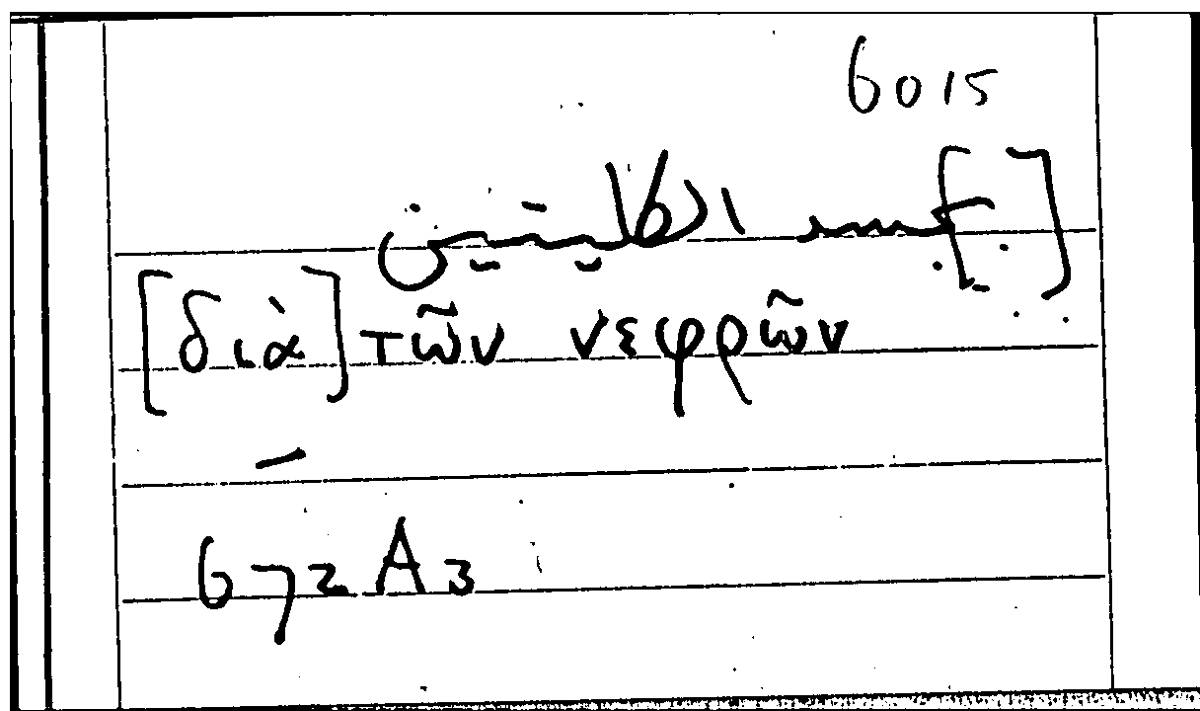 6015
الكليتين
[διὰ] τῶν νεφρῶν
–
672 A3